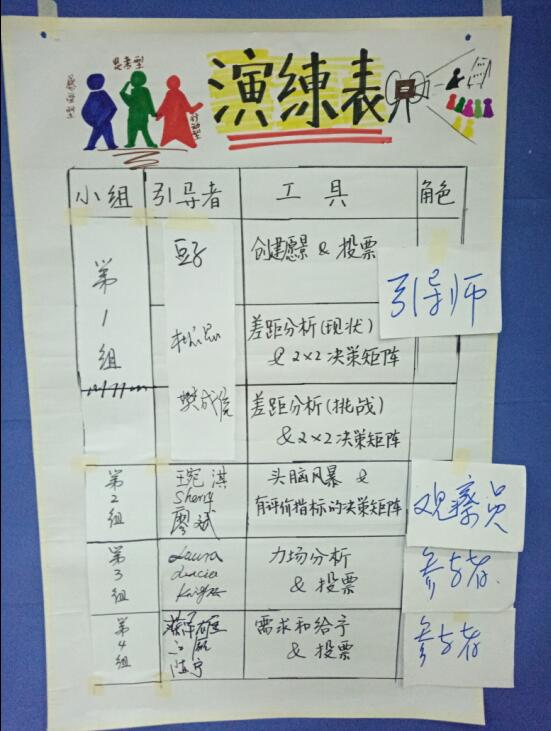 思考型
演练表
小组
引导者
工具
角色
第1组
豆子
创建愿景 & 投票
引导师
差距分析(现状)
& 2×2决策矩阵
樊成信
差距分析(挑战)
& 2×2决策矩阵
第2组
王宛淇
Sheng
廖斌
头脑风暴 &
有评价指标的决策矩阵
观察员
第3组
Laura
Lucia
Knight
力场分析
& 投票
参与者
第4组
需求和给予
& 投票
参与者